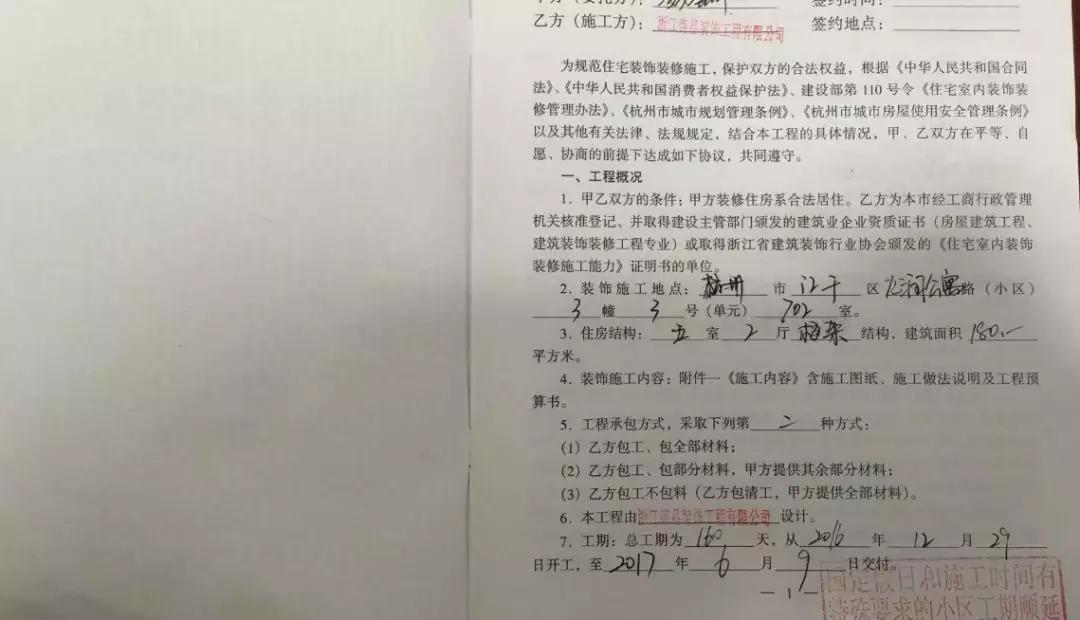 甲方（委托方）： 签约时间：
乙方（施工方）： 浙江 品装饰工程有限公司 签约地点：
为规范住宅装饰装修施工，保护双方的合法权益，根据《中华人民共和国合同
法》、《中华人民共和国消费者权益保护法》、建设部第 110 号令《住宅室内装饰装
修管理办法》、《杭州市城市规划管理条例》、《杭州市城市房屋使用安全管理条例》
以及其他有关法律、法规规定，结合本工程的具体情况，甲、乙双方在平等、自
愿、协商的前提下达成如下协议，共同遵守。
一、工程概况
1．甲乙双方的条件：甲方装修住房系合法居住。乙方为本市经工商行政管理
机关核准登记、并取得建设主管部门颁发的建筑业企业资质证书（房屋建筑工程、
建筑装饰装修工程专业）或取得浙江省建筑装饰行业协会颁发的《住宅室内装饰
装修施工能力》证明书的单位。
2．装饰施工地点：杭州 市 江干 区 九润公寓 路（小区）
3 幢 3 号（单元） 702 室。
3．住房结构： 五 室 2 厅 框架 结构，建筑面积 180.—
平方米。
4．装饰施工内容：附件一《施工内容》含施工图纸、施工做法说明及工程预
算书。
5．工程承包方式，采取下列第 二 种方式：
（1）乙方包工、包全部材料；
（2）乙方包工、包部分材料，甲方提供其余部分材料；
（3）乙方包工不包料（乙方包清工，甲方提供全部材料）。
6．本工程由浙江 品装饰工程有限公司 设计。
7．工期：总工期为 160 天，从 2016 年 12 月 29
日开工，至 2017 年 6 月 9 日交付。
— 1 —
固定假日和施工时间有
特殊要求的小区工期顺延